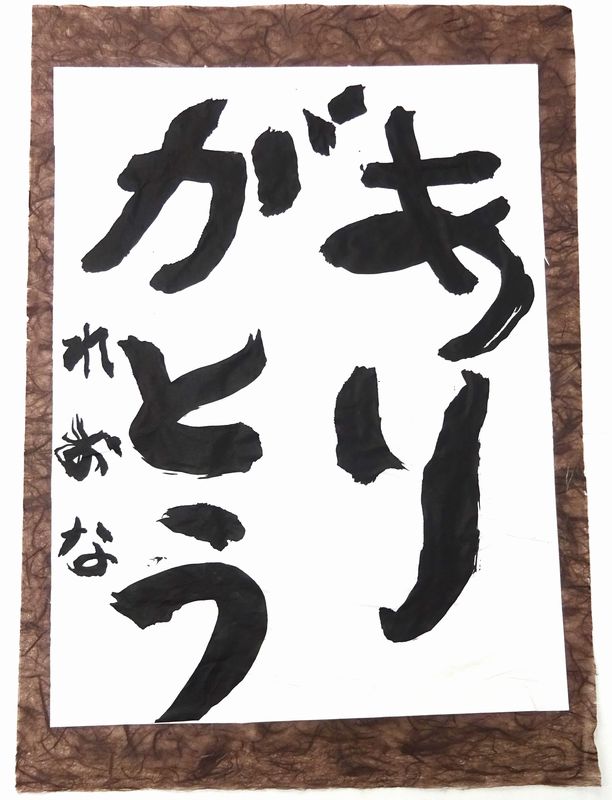 あり
がとう
れおな